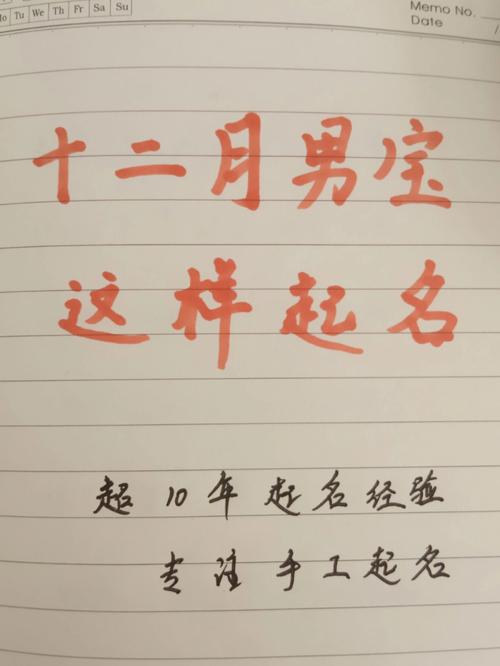 Mo Tu We Th Fr Sa Su
Memo No.
Date /
十二月男宝
这样起名
超10年起名经验
专注手工起名